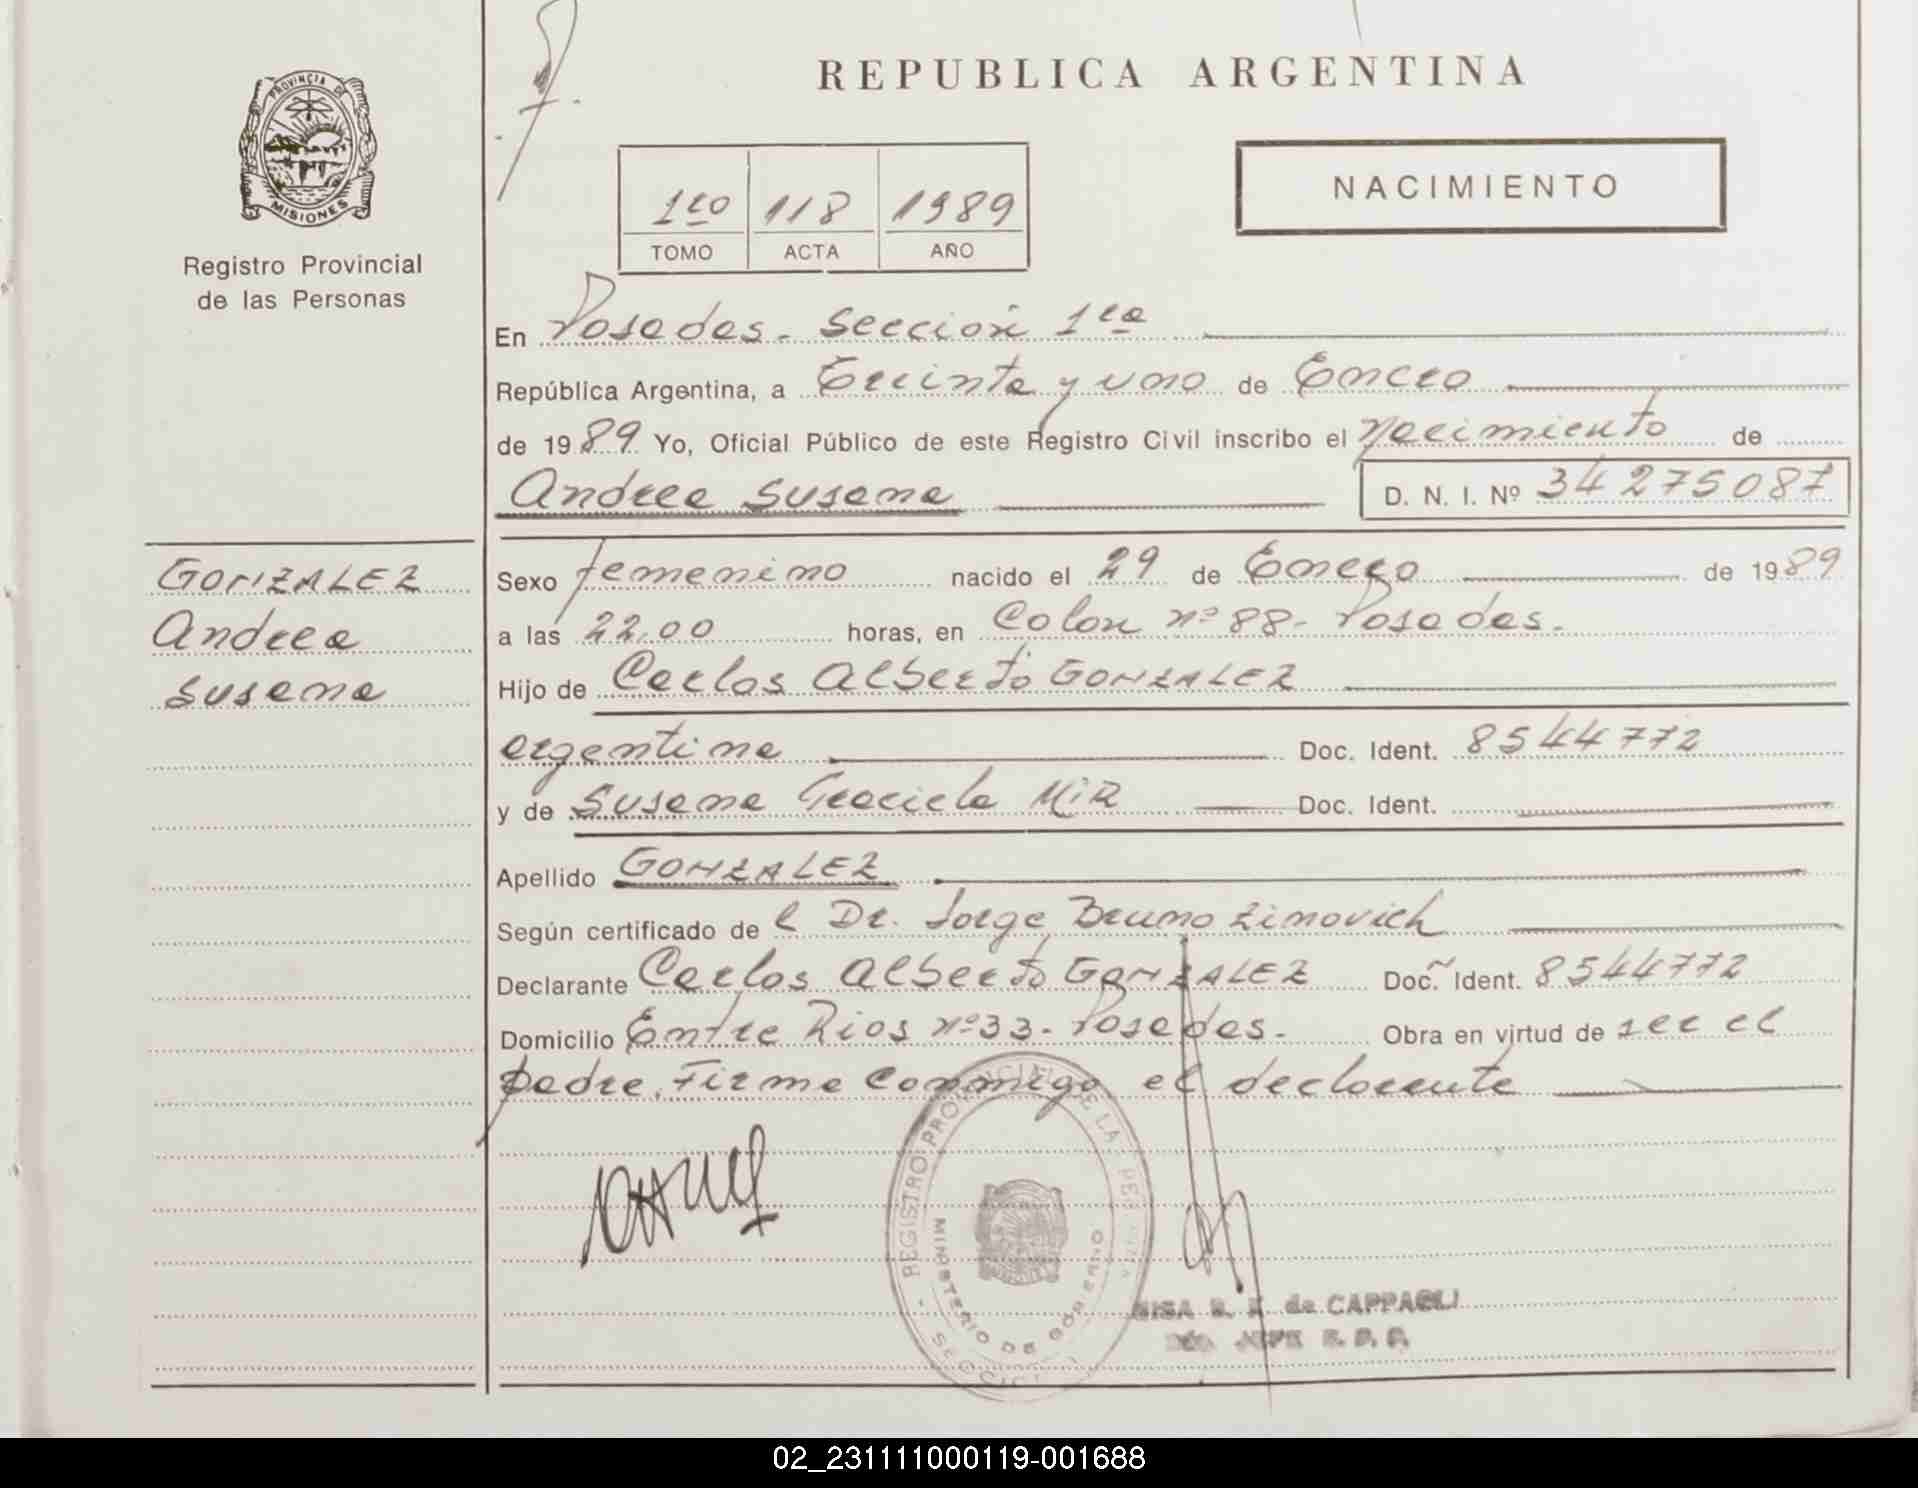 REPUBLICA ARGENTINA
PROVINCIA DE
MISIONES
Registro Provincial
de las Personas
1ro 118 1989
TOMO ACTA AÑO
NACIMIENTO
En Posadas. Sección 1ra
República Argentina, a Treinta y uno de Enero
de 1989 Yo, Oficial Público de este Registro Civil inscribo el Nacimiento de
Andrea Susana D. N. I. Nº 34 275087
GONZALEZ
Andrea
Susana
Sexo femenino nacido el 29 de Enero de 1989
a las 22.00 horas, en Colon nº 88. Posadas.
Hijo de Carlos Alberto GONZALEZ
argentina Doc. Ident. 8544772
y de Susana Graciela MIR Doc. Ident.
Apellido GONZALEZ
Según certificado de l Dr. Jorge Bruno Zimovich
Declarante Carlos Alberto GONZALEZ Doc. Ident. 8544772
Domicilio Entre Rios nº 33. Posadas. Obra en virtud de ser el
padre. Firma conmigo el declarante
REGISTRO PROVINCIAL DE LA
MINISTERIO DE GOBIERNO
de CAPPAGLI
JEFE
02_231111000119-001688